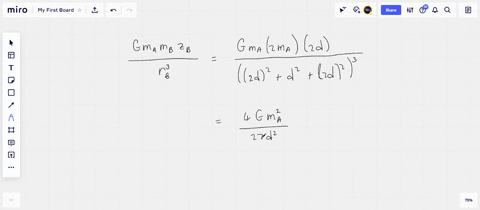 miro My First Board Share
G m_A m_B z_B / r_B^3 = G m_A (2m_A) (2d) / ((2d)^2 + d^2 + (2d)^2)^3
= 4 G m_A^2 / 27d^2
79%